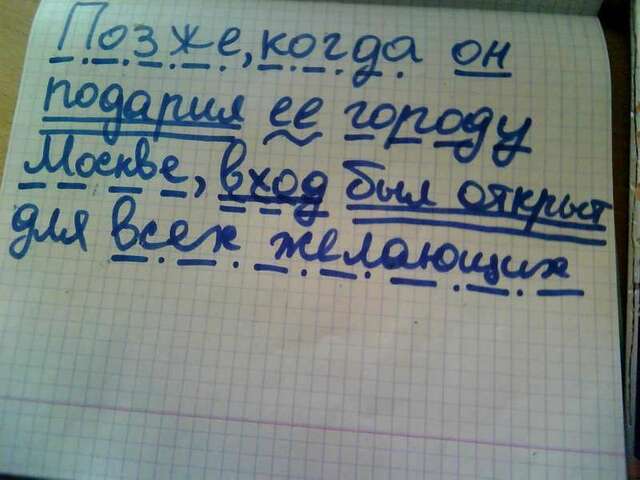 Позже, когда он
подарил ее городу
Москве, вход был открыт
для всех желающих